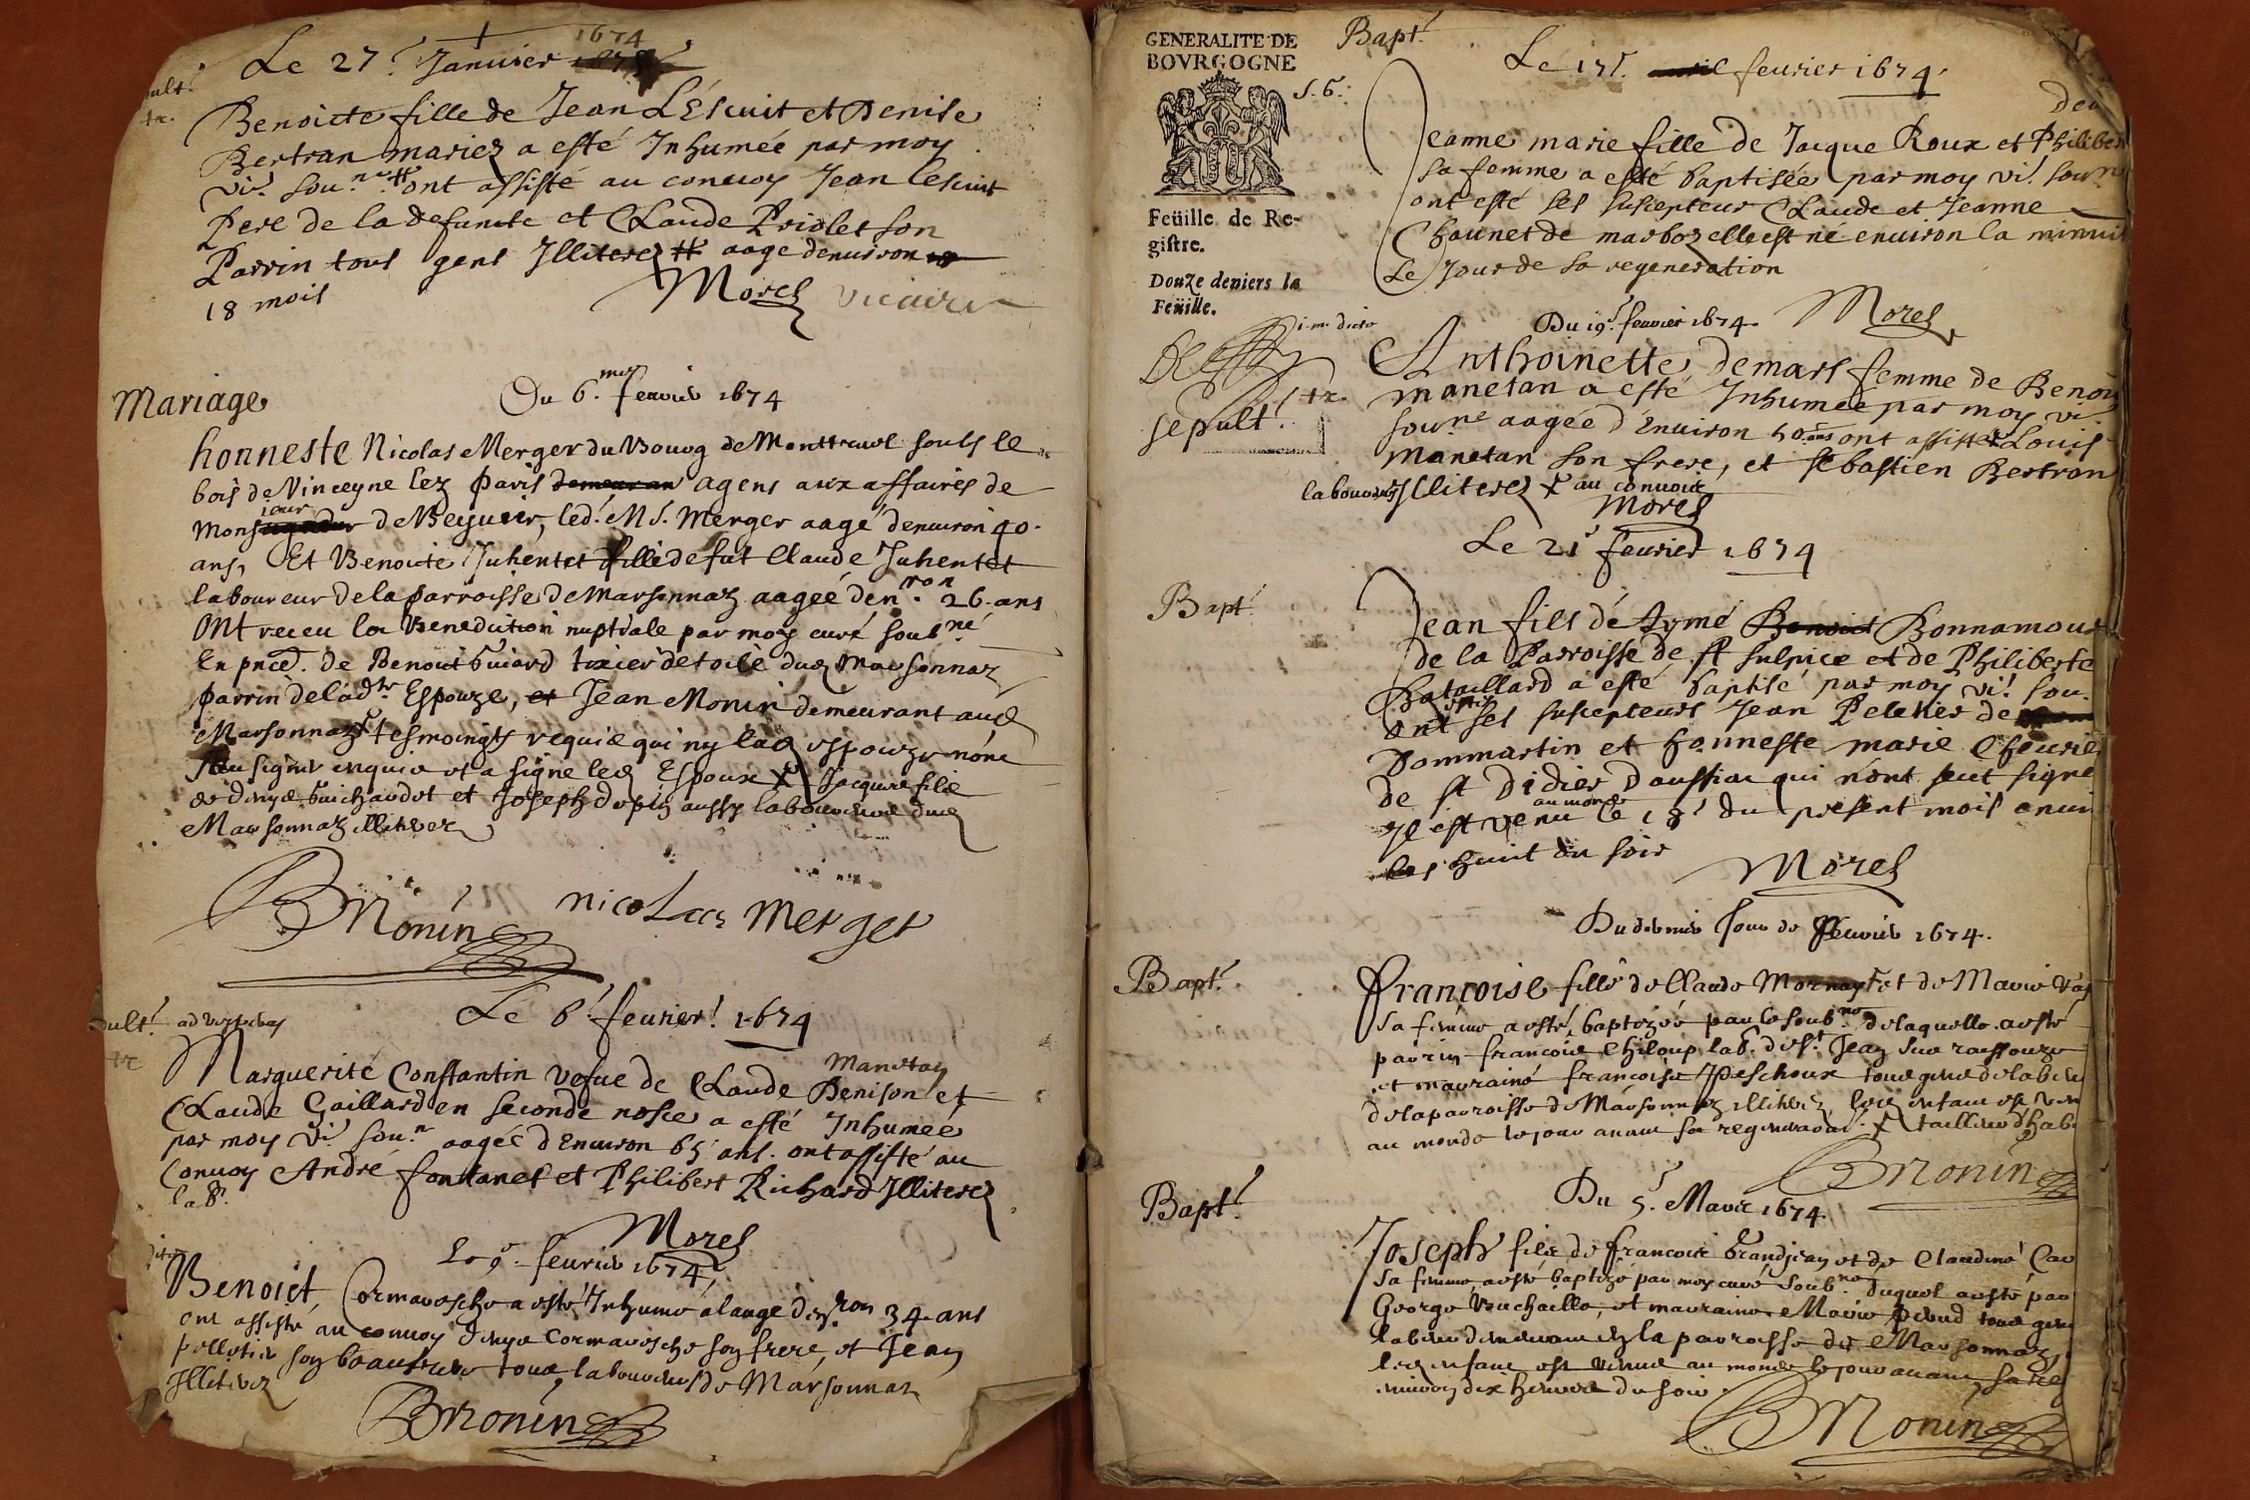 1674
Le 27e Januier
Benoicte fille de Jean L'Escuit et Denise
Bertran mariez a esté Inhumée par moy
vi.e sou.né # ont assisté au conuoy Jean Lescuit
Pere de la defuncte et Claude Priolet son
Parrin tous gens Illiterez # aage denuiron
18 mois
Morel vicaire
Mariage
Du 6.me feburier 1674
honneste Nicolas Merger du Bourg de Monttreuol soubs le
bois de Vinceyne lez Paris agens aux affaires de
Monsieur de led. Mr. Merger aagé denuiron 40
ans, Et Benoite Juhentet fille de fut Claude Juhentet
laboureur de la parroisse de Marsonnaz aagée denron 26 ans
Ont receu la Benediction nuptiale par moy curé soubné
En pnce de Benoit Guiard tixier de toile dud Marsonnaz
parrin de lad.te Espouze, Jean Monin demeurant aud
Marsonnaz tesmoingts requis qui ny lad espouze nont
sceu signer enquis et a signé led Espoux Jacque fils
de denys Guichardet et Joseph dupin aussy laboureurs dud
Marsonnaz illiterez
BMonin nicolas merger
Le 6e feurier 1674
Manetan
Marguerite Constantin vefue de Claude Denison et
Claude Gaillard en seconde nosce a esté Inhumée
par moy vi.e sou.né aagée d'Enuiron 65 ans. ont assisté au
Conuoy André fontanel et Philibert Richard Illiterez
lab.
Morel
Le 9e feurier 1674
Benoict Cormaresche a esté Inhumé a laage denron 34 ans
ont assisté au conuoy denys Cormaresche son frere, et Jean
pelletier son beaufrere tous laboureurs de Marsonnaz
Illiterez
BMonin
GENERALITE DE
BOVRGOGNE
S. 6.
Feüille de Re-
gistre.
Douze deniers la
Feüille.
Bapt.
Le 17e feurier 1674
Jeanne marie fille de Jacque Roux et Philiber
sa femme a esté baptisée par moy vi.e sou.n
ont esté ses suscepteur Claude et Jeanne
Chaunet de marboz elle est né enuiron la minuit
Le Jour de sa regeneration
Morel
Du 19e feurier 1674
sepult.
Anthoinette demars femme de Benoi
manetan a esté Inhumée par moy vi.
sou.né aagée d'Enuiron 50 ans ont assisté Louis
Manetan son frere, et sebastien Bertran
laboureurs Illiterez au conuoir
Morel
Le 21e feurier 1674
Bapt.
Jean fils de Aymé Bonnamour
de la Parroisse de st sulpice et de Philiberte
Bataillard a esté baptisé par moy vi.e sou.
ont estés ses suscepteurs Jean Peletier de
Dommartin et honneste marie Cheurie
de st Didier Daussia qui n'ont sceut signe
Il est venu au monde le 18e du present mois enui
les huit du soir
Morel
Du dernier Jour de Feurier 1674.
Bapt.
Francoise fille de Claude et de Marie
sa femme a esté baptizée par le soub.né de laquelle a esté
parrin francois Chiloup lab. de st Jean sur raissouze
et marraine francoise Peschoux tous gens de labeur
de la parroisse de Marsonnaz illiterez led enfant est ven
au monde le jour auant sa regeneraon. tailleur d'hab
BMonin
Du 5e Mars 1674
Bapt.
Joseph fils de francois Grandjean et de Claudine
sa femme a esté baptizé par moy curé soub.né duquel a esté par
George Vuichaille, et marraine Marie tous gens
labeur demeurant en la parroisse de Marsonnaz,
led enfant est venu au monde le jour auant sa reg
enuiron dix heures du soir
BMonin